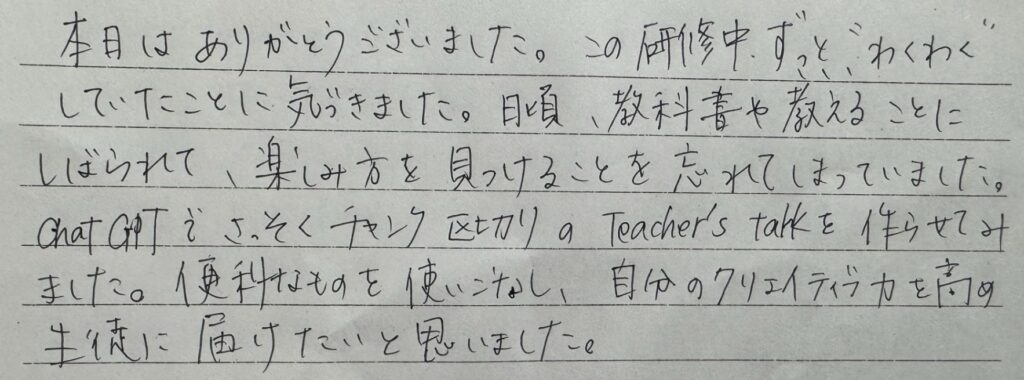 本日はありがとうございました。この研修中、ずっと、"わくわく"
していたことに気づきました。日頃、教科書や教えることに
しばられて、楽しみ方を見つけることを忘れてしまっていました。
ChatGPTでさっそくチャンク区切りのTeacher's talkを作らせてみ
ました。便利なものを使いこなし、自分のクリエイティブ力を高め
生徒に届けたいと思いました。